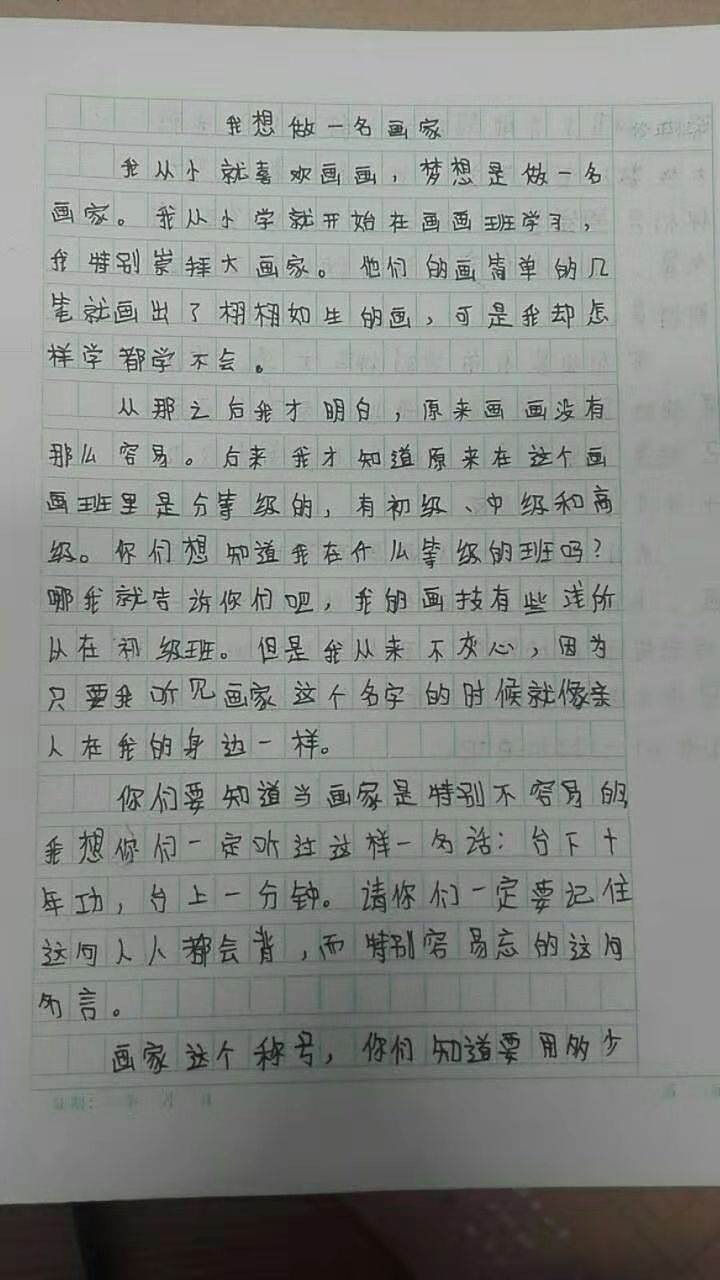 我想做一名画家
我从小就喜欢画画，梦想是做一名
画家。我从小学就开始在画画班学习，
我特别崇拜大画家。他们的画简单的几
笔就画出了栩栩如生的画，可是我却怎
样学都学不会。
从那之后我才明白，原来画画没有
那么容易。后来我才知道原来在这个画
画班里是分等级的，有初级、中级和高
级。你们想知道我在什么等级的班吗？
哪我就告诉你们吧，我的画技有些浅所
以在初级班。但是我从来不灰心，因为
只要我听见画家这个名字的时候就像亲
人在我的身边一样。
你们要知道当画家是特别不容易的
我想你们一定听过这样一句话：台下十
年功，台上一分钟。请你们一定要记住
这句人人都会背，而特别容易忘的这句
名言。
画家这个称号，你们知道要用多少